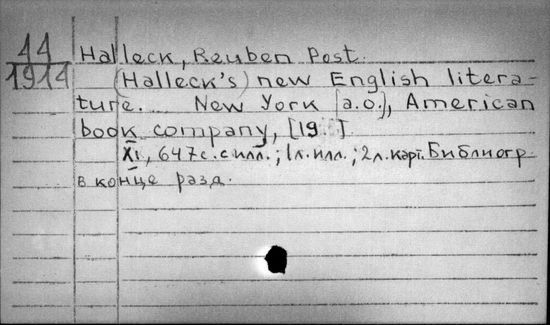 11
1914
Halleck, Reuben Post.
(Halleck's) new English litera-
ture. New York [a.o.], American
book company, [19 ].
XI, 647с. с илл.; 1л. илл.; 2л. карт. Библиогр.
в конце разд.